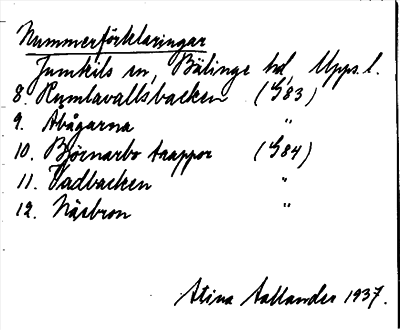 Nummerförklaringar
Jumkils sn, Bälinge hd, Upps. l.
8. Humlavallsbacken (G83)
9. Abågarna "
10. Björnarbo trappor (G84)
11. Vadbacken "
12. Näsbron "
Stina Sallander 1937.